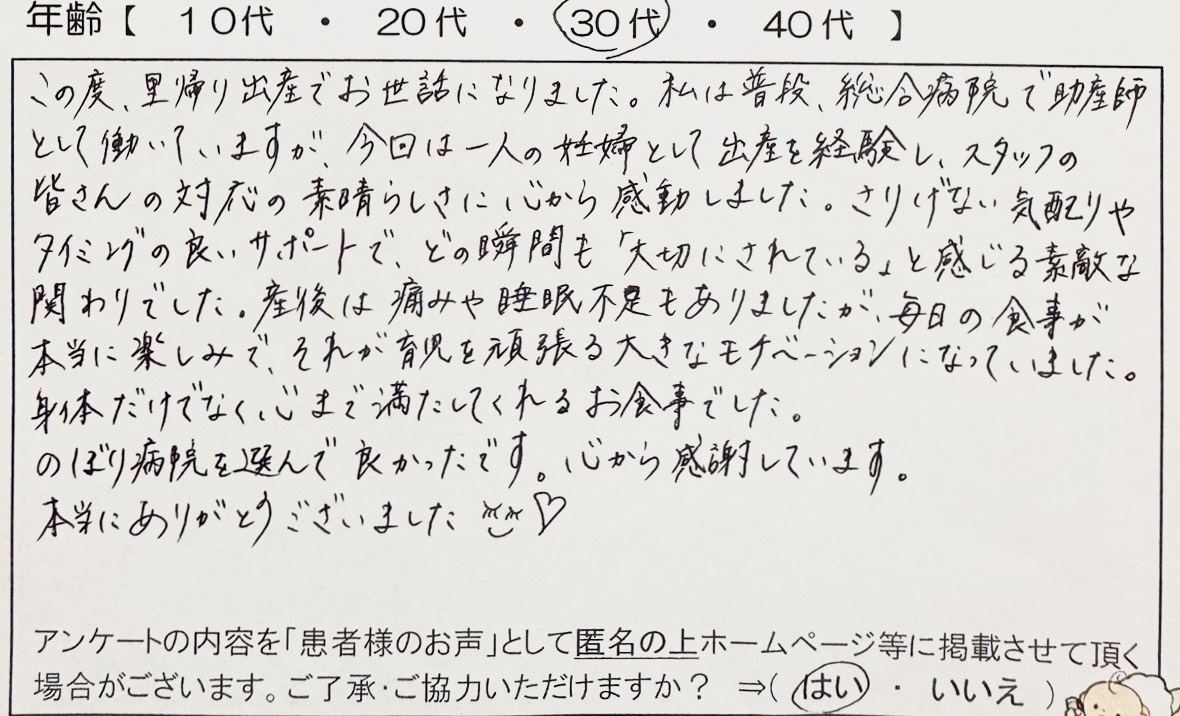 年齢【 10代 ・ 20代 ・ 30代 ・ 40代 】
この度、里帰り出産でお世話になりました。私は普段、総合病院で助産師
として働いていますが、今回は一人の妊婦として出産を経験し、スタッフの
皆さんの対応の素晴らしさに心から感動しました。さりげない気配りや
タイミングの良いサポートで、どの瞬間も「大切にされている」と感じる素敵な
関わりでした。産後は痛みや睡眠不足もありましたが、毎日の食事が
本当に楽しみで、それが育児を頑張る大きなモチベーションになっていました。
身体だけでなく、心まで満たしてくれるお食事でした。
のぼり病院を選んで良かったです。心から感謝しています。
本当にありがとうございました
アンケートの内容を「患者様のお声」として匿名の上ホームページ等に掲載させて頂く
場合がございます。ご了承・ご協力いただけますか？ ⇒( はい ・ いいえ )